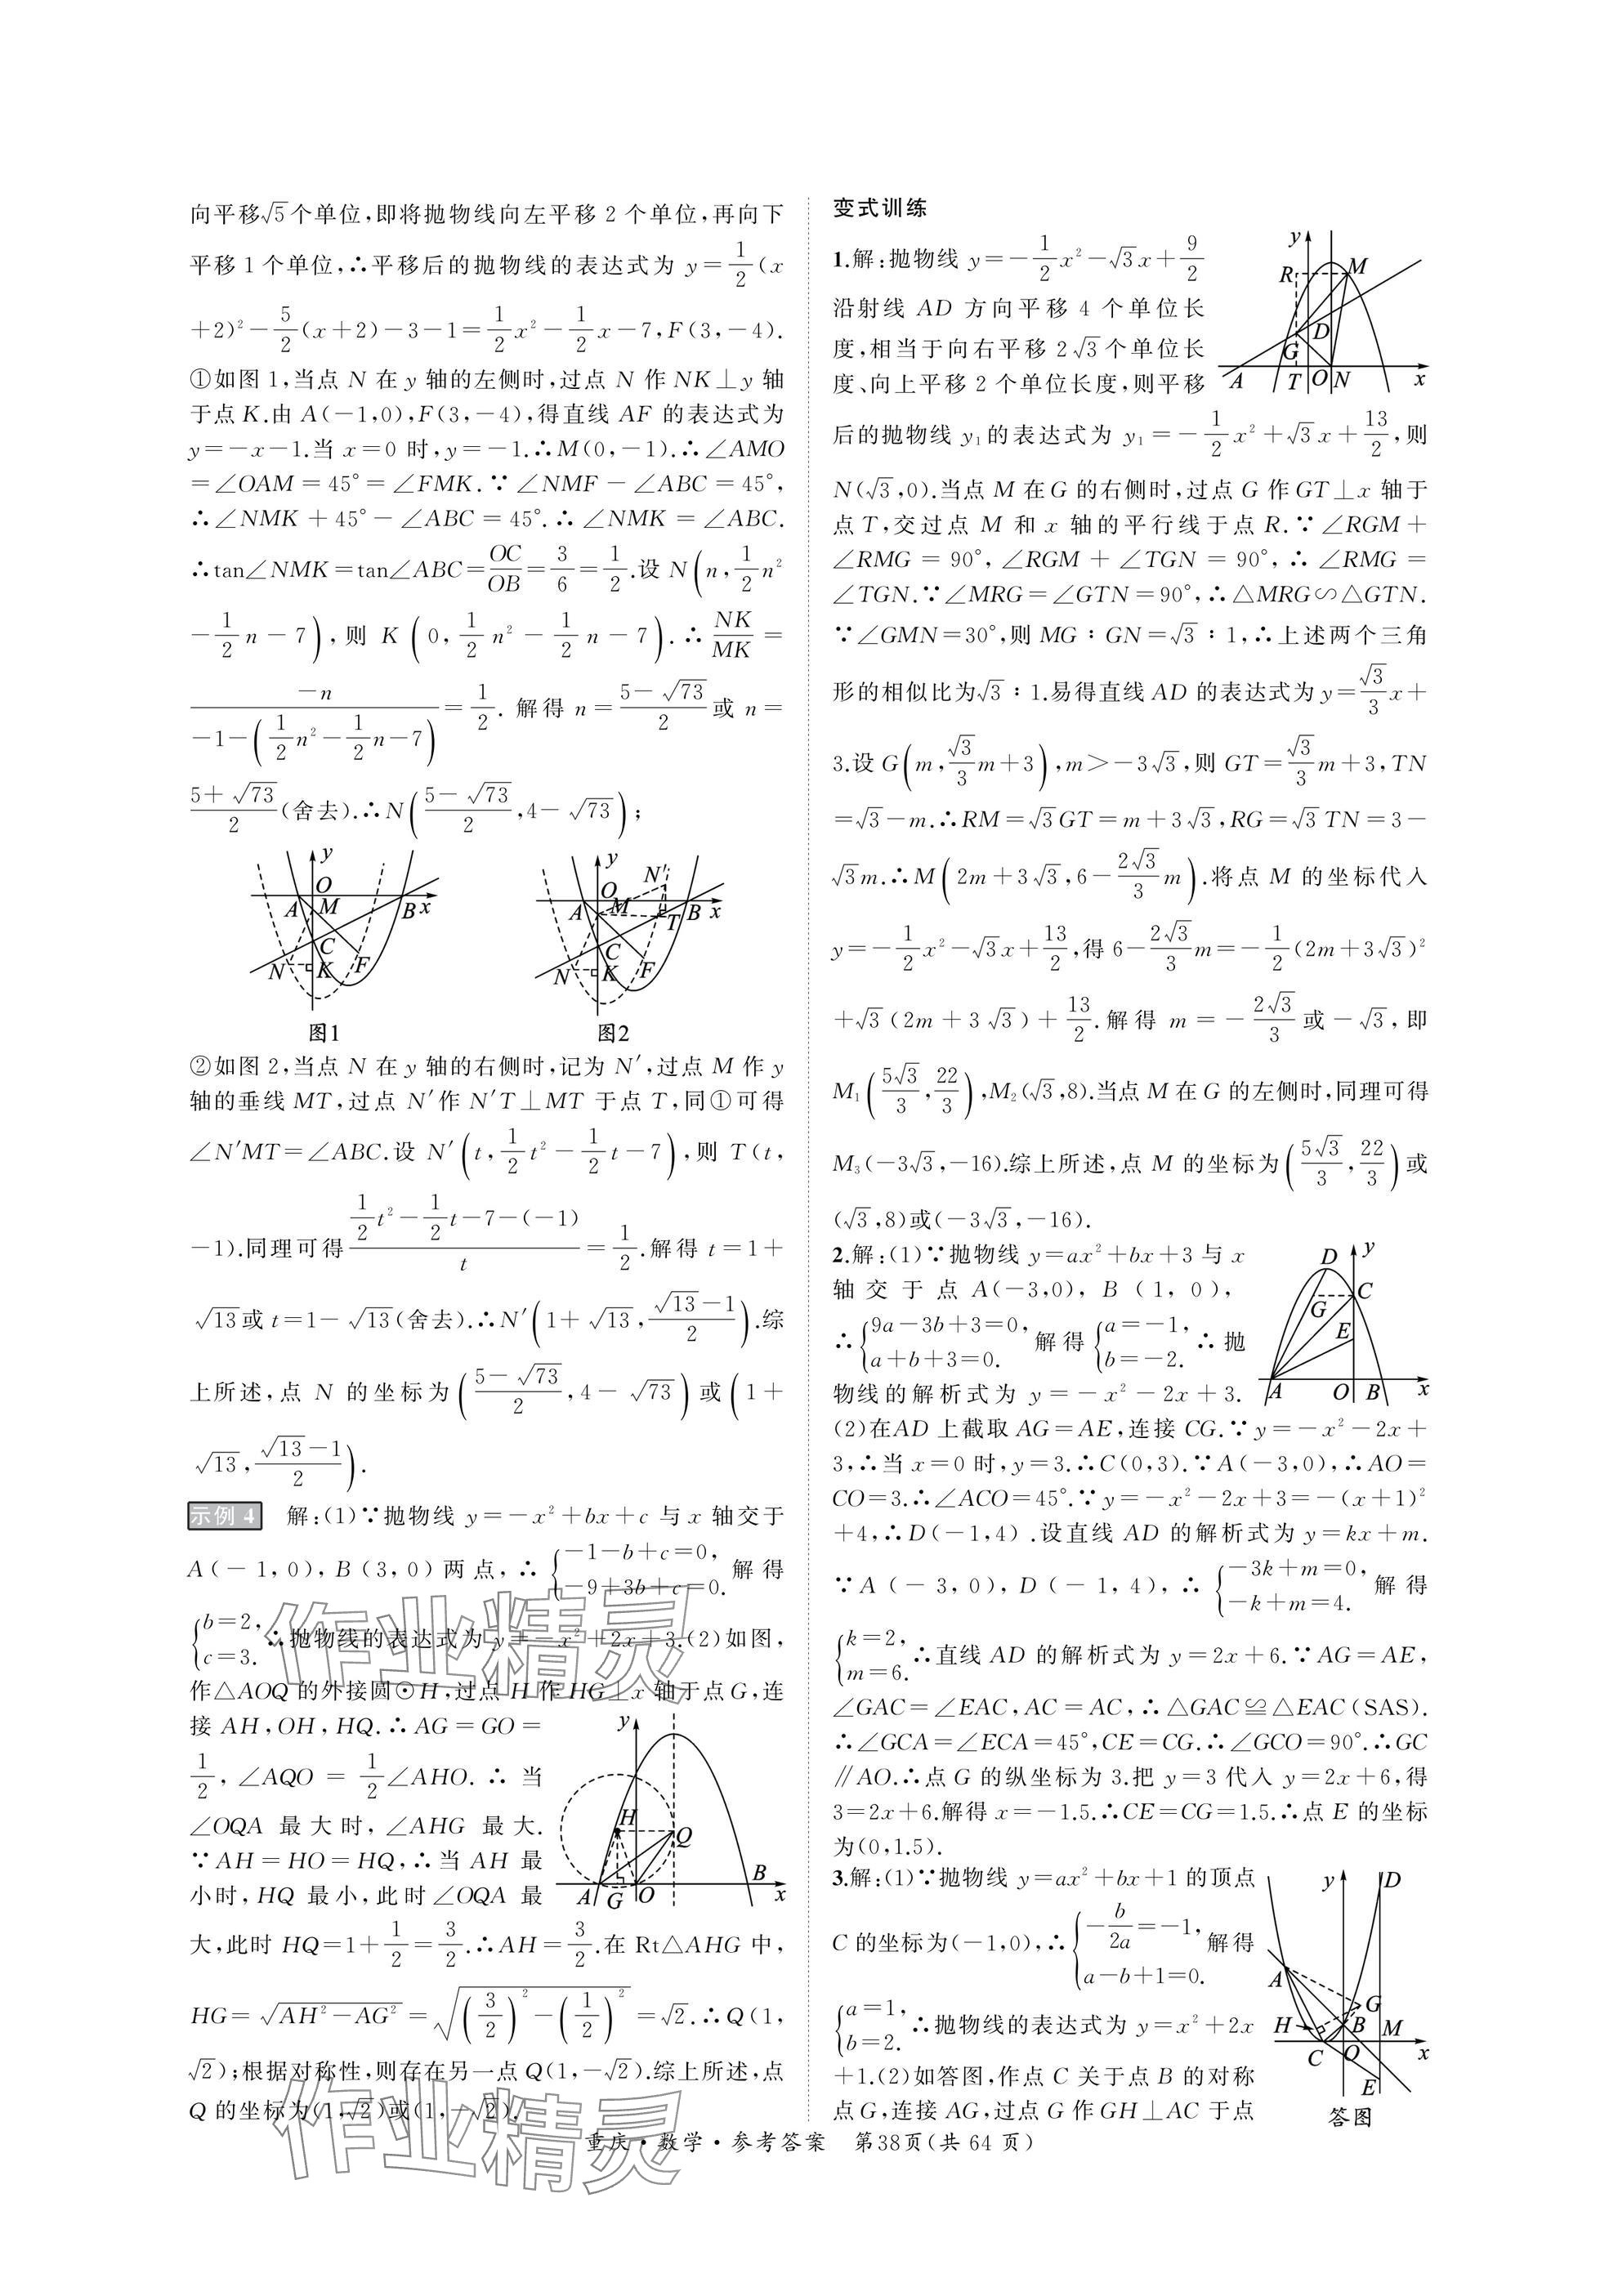 向平移√5个单位,即将抛物线向左平移 2 个单位,再向下
平移 1 个单位,∴平移后的抛物线的表达式为 y=1/2(x
+2)²-5/2(x+2)-3-1=1/2x²-1/2x-7,F(3,-4).
①如图 1,当点 N 在 y 轴的左侧时,过点 N 作 NK⊥y 轴
于点 K.由 A(-1,0),F(3,-4),得直线 AF 的表达式为
y=-x-1.当 x=0 时,y=-1.∴M(0,-1).∴∠AMO
=∠OAM=45°=∠FMK.∵∠NMF-∠ABC=45°,
∴∠NMK+45°-∠ABC=45°.∴∠NMK=∠ABC.
∴tan∠NMK=tan∠ABC=OC/OB=3/6=1/2.设 N(n,1/2n²
-1/2n-7),则 K(0,1/2n²-1/2n-7).∴NK/MK=
-n/(-1-(1/2n²-1/2n-7))=1/2.解得 n=(5-√73)/2或 n=
(5+√73)/2(舍去).∴N((5-√73)/2,4-√73);
y
O
A
M
B
x
C
N
K
F
图1
y
N′
O
A
M
T
B
x
C
N
K
F
图2
②如图 2,当点 N 在 y 轴的右侧时,记为 N′,过点 M 作 y
轴的垂线 MT,过点 N′作 N′T⊥MT 于点 T,同①可得
∠N′MT=∠ABC.设 N′(t,1/2t²-1/2t-7),则 T(t,
-1).同理可得(1/2t²-1/2t-7-(-1))/t=1/2.解得 t=1+
√13或 t=1-√13(舍去).∴N′(1+√13,(√13-1)/2).综
上所述,点 N 的坐标为((5-√73)/2,4-√73)或(1+
√13,(√13-1)/2).
示例 4 解:(1)∵抛物线 y=-x²+bx+c 与 x 轴交于
A(-1,0),B(3,0)两点,∴{-1-b+c=0, -9+3b+c=0. 解得
{b=2, c=3. ∴抛物线的表达式为 y=-x²+2x+3.(2)如图,
作△AOQ 的外接圆⊙H,过点 H 作 HG⊥x 轴于点 G,连
接 AH,OH,HQ.∴AG=GO=
1/2,∠AQO=1/2∠AHO.∴当
∠OQA 最大时,∠AHG 最大.
∵AH=HO=HQ,∴当 AH 最
小时,HQ 最小,此时∠OQA 最
y
H
Q
A
G
O
B
x
大,此时 HQ=1+1/2=3/2.∴AH=3/2.在 Rt△AHG 中,
HG=√(AH²-AG²)=√((3/2)²-(1/2)²)=√2.∴Q(1,
√2);根据对称性,则存在另一点 Q(1,-√2).综上所述,点
Q 的坐标为(1,√2)或(1,-√2).
变式训练
1.解:抛物线 y=-1/2x²-√3x+9/2
沿射线 AD 方向平移 4 个单位长
度,相当于向右平移 2√3个单位长
度、向上平移 2 个单位长度,则平移
y
R
M
D
G
A
T
O
N
x
后的抛物线 y₁的表达式为 y₁=-1/2x²+√3x+13/2,则
N(√3,0).当点 M 在 G 的右侧时,过点 G 作 GT⊥x 轴于
点 T,交过点 M 和 x 轴的平行线于点 R.∵∠RGM+
∠RMG=90°,∠RGM+∠TGN=90°,∴∠RMG=
∠TGN.∵∠MRG=∠GTN=90°,∴△MRG∽△GTN.
∵∠GMN=30°,则 MG∶GN=√3∶1,∴上述两个三角
形的相似比为√3∶1.易得直线 AD 的表达式为 y=√3/3x+
3.设 G(m,√3/3m+3),m>-3√3,则 GT=√3/3m+3,TN
=√3-m.∴RM=√3GT=m+3√3,RG=√3TN=3-
√3m.∴M(2m+3√3,6-2√3/3m).将点 M 的坐标代入
y=-1/2x²-√3x+13/2,得 6-2√3/3m=-1/2(2m+3√3)²
+√3(2m+3√3)+13/2.解得 m=-2√3/3或-√3,即
M₁(5√3/3,22/3),M₂(√3,8).当点 M 在 G 的左侧时,同理可得
M₃(-3√3,-16).综上所述,点 M 的坐标为(5√3/3,22/3)或
(√3,8)或(-3√3,-16).
2.解:(1)∵抛物线 y=ax²+bx+3 与 x
轴交于点 A(-3,0),B(1,0),
∴{9a-3b+3=0, a+b+3=0. 解得{a=-1, b=-2. ∴抛
物线的解析式为 y=-x²-2x+3.
D
y
C
G
E
A
O
B
x
(2)在AD 上截取 AG=AE,连接 CG.∵y=-x²-2x+
3,∴当 x=0 时,y=3.∴C(0,3).∵A(-3,0),∴AO=
CO=3.∴∠ACO=45°.∵y=-x²-2x+3=-(x+1)²
+4,∴D(-1,4).设直线 AD 的解析式为 y=kx+m.
∵A(-3,0),D(-1,4),∴{-3k+m=0, -k+m=4. 解得
{k=2, m=6. ∴直线 AD 的解析式为 y=2x+6.∵AG=AE,
∠GAC=∠EAC,AC=AC,∴△GAC≌△EAC(SAS).
∴∠GCA=∠ECA=45°,CE=CG.∴∠GCO=90°.∴GC
∥AO.∴点 G 的纵坐标为 3.把 y=3 代入 y=2x+6,得
3=2x+6.解得 x=-1.5.∴CE=CG=1.5.∴点 E 的坐标
为(0,1.5).
3.解:(1)∵抛物线 y=ax²+bx+1 的顶点
C 的坐标为(-1,0),∴{-b/2a=-1, a-b+1=0. 解得
{a=1, b=2. ∴抛物线的表达式为 y=x²+2x
+1.(2)如答图,作点 C 关于点 B 的对称
点 G,连接 AG,过点 G 作 GH⊥AC 于点
y
D
A
G
H
B
M
C
O
x
E
答图
作业精灵
作业精灵
重庆·数学·参考答案 第38页(共 64 页)